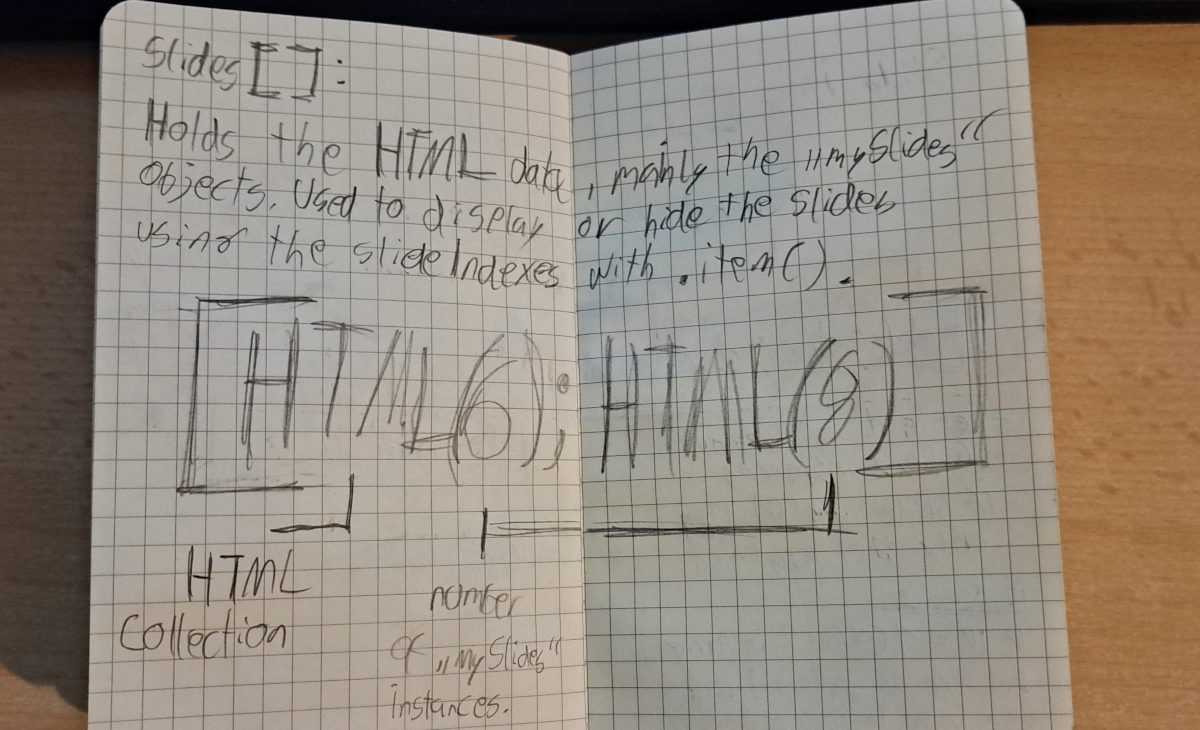 Slides []:
Holds the HTML data, mainly the „mySlides“
Objects. Used to display or hide the slides
using the slideIndexes with .item().
[HTML(6); HTML(8)]
HTML
Collection
number
of „mySlides“
instances.